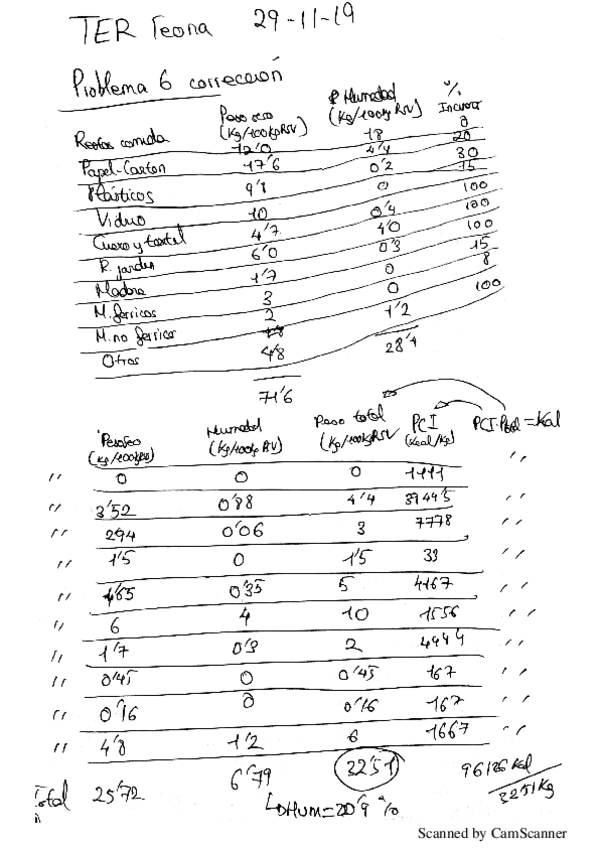 TER Teoría 29-11-19
Problema 6 corrección
Peso seco (Kg/100KgRSU) Humedad (Kg/100Kg RSU) % Incinera
Restos comida 12'0 18 0
Papel-Carton 17'6 4'4 20
Plásticos 9'8 0'2 30
Vidrio 10 0 15
Cuero y textil 4'7 0'4 100
R. jardin 6'0 4'0 100
Madera 1'7 0'3 100
M. ferricos 3 0 15
M. no ferrico 2 0 8
Otros 4'8 1'2 100
71'6 28'4
Peso seco (Kg/100KgRSU) Humedad (Kg/100Kg RSU) Peso total (Kg/100KgRSU) PCI (Kcal/Kg) PCI·Ptotal = Kcal
" 0 0 0 1111 "
" 3'52 0'88 4'4 3944'5 "
" 2'94 0'06 3 7778 "
" 1'5 0 1'5 33 "
" 4'65 0'35 5 4167 "
" 6 4 10 1556 "
" 1'7 0'3 2 4444 "
" 0'45 0 0'45 167 "
" 0'16 0 0'16 167 "
" 4'8 1'2 6 1667 "
Total 25'72 6'79 32'51 96186 Kcal
32'51 Kg
DHUM = 20'9 %
Scanned by CamScanner